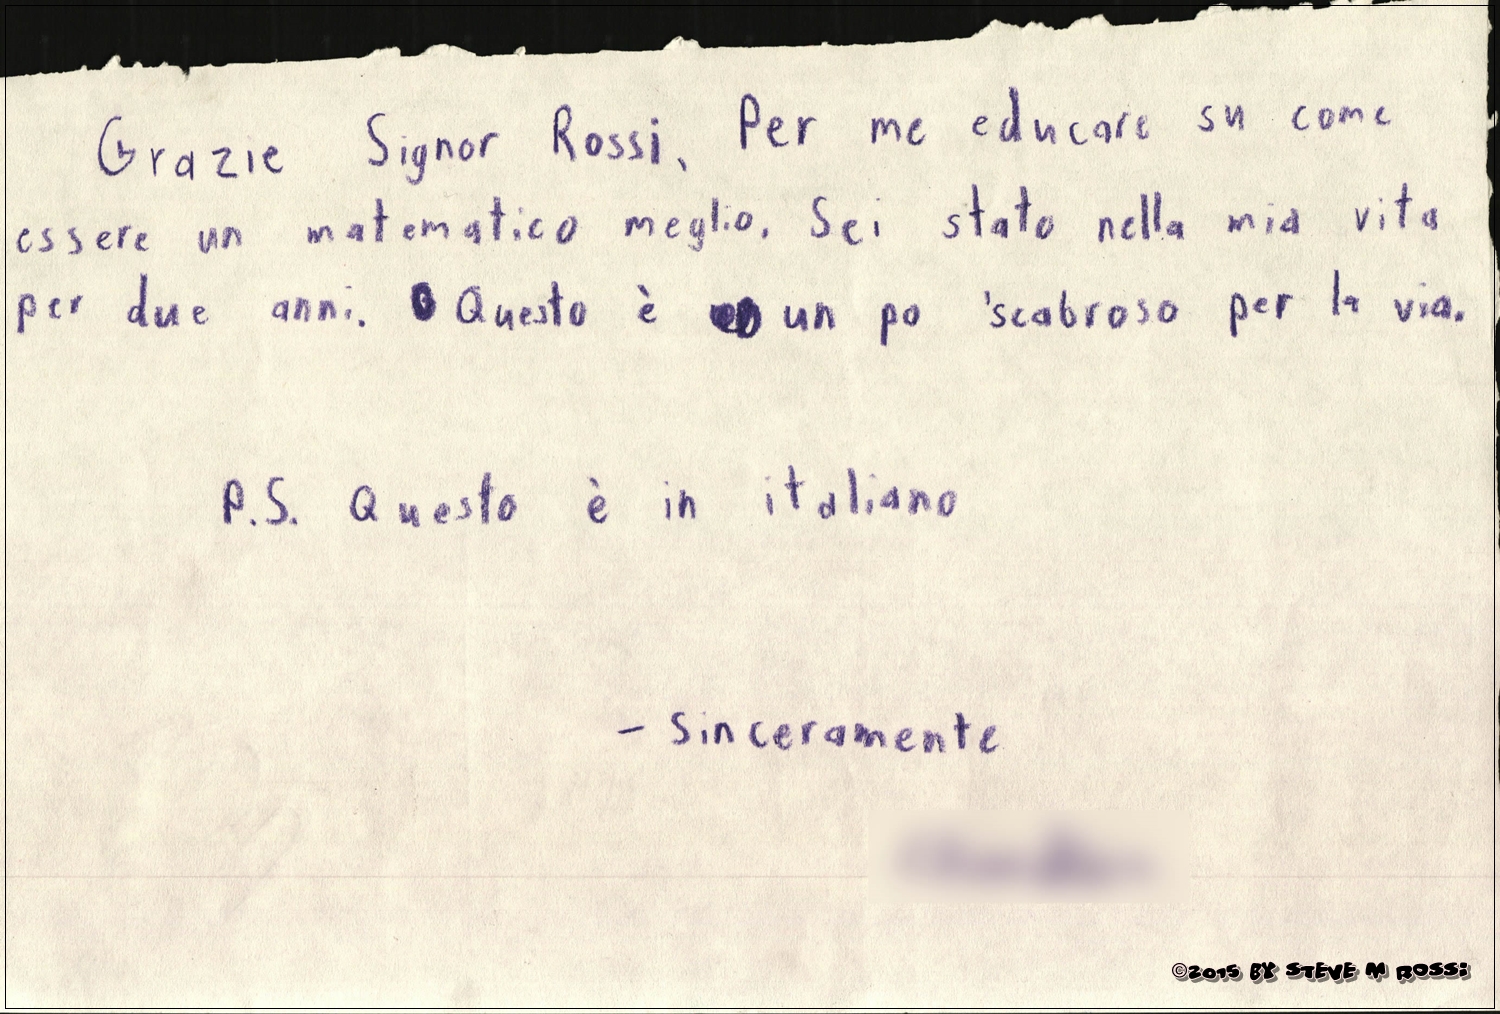 Grazie Signor Rossi, Per me educare su come
essere un matematico meglio. Sei stato nella mia vita
per due anni. Questo è un po 'scabroso per la via.
P.S. Questo è in italiano
- Sinceramente
©2015 BY STEVE M ROSSi